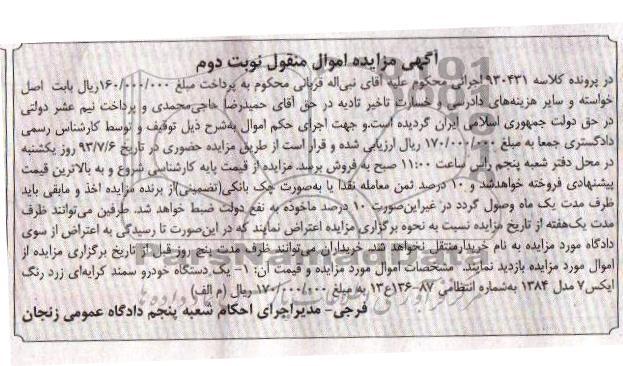 آگهی مزایده اموال منقول نوبت دوم
در پرونده کلاسه ۹۳۰۴۳۱ اجرائی محکوم علیه آقای نبی‌اله قربانی محکوم به پرداخت مبلغ ۱۶۰/۰۰۰/۰۰۰ریال بابت اصل
خواسته و سایر هزینه‌های دادرسی و خسارت تاخیر تادیه در حق آقای حمیدرضا حاجی‌محمدی و پرداخت نیم عشر دولتی
در حق دولت جمهوری اسلامی ایران گردیده است.و جهت اجرای حکم اموال به‌شرح ذیل توقیف و توسط کارشناس رسمی
دادگستری جمعا به مبلغ ۱۷۰/۰۰۰/۰۰۰ ریال ارزیابی شده و قرار است از طریق مزایده حضوری در تاریخ ۹۳/۷/۶ روز یکشنبه
در محل دفتر شعبه پنجم راس ساعت ۱۱:۰۰ صبح به فروش برسد. مزایده از قیمت پایه کارشناسی شروع و به بالاترین قیمت
پیشنهادی فروخته خواهدشد و ۱۰ درصد ثمن معامله نقدا یا به‌صورت چک بانکی(تضمینی)از برنده مزایده اخذ و مابقی باید
ظرف مدت یک ماه وصول گردد در غیراین‌صورت ۱۰ درصد ماخوذه به نفع دولت ضبط خواهد شد. طرفین می‌توانند ظرف
مدت یک‌هفته از تاریخ مزایده نسبت به نحوه برگزاری مزایده اعتراض نمایند که در این‌صورت تا رسیدگی به اعتراض از سوی
دادگاه مورد مزایده به نام خریدارمنتقل نخواهد شد. خریداران می‌توانند ظرف مدت پنج روز قبل از تاریخ برگزاری مزایده از
اموال مورد مزایده بازدید نمایند. مشخصات اموال مورد مزایده و قیمت آن: ۱- یک دستگاه خودرو سمند کرایه‌ای زرد رنگ
ایکس۷ مدل ۱۳۸۴ به‌شماره انتظامی ۸۷-۱۳۶ع۱۳ به مبلغ ۱۷۰/۰۰۰/۰۰۰ ریال (م الف)
فرجی- مدیراجرای احکام شعبه پنجم دادگاه عمومی زنجان